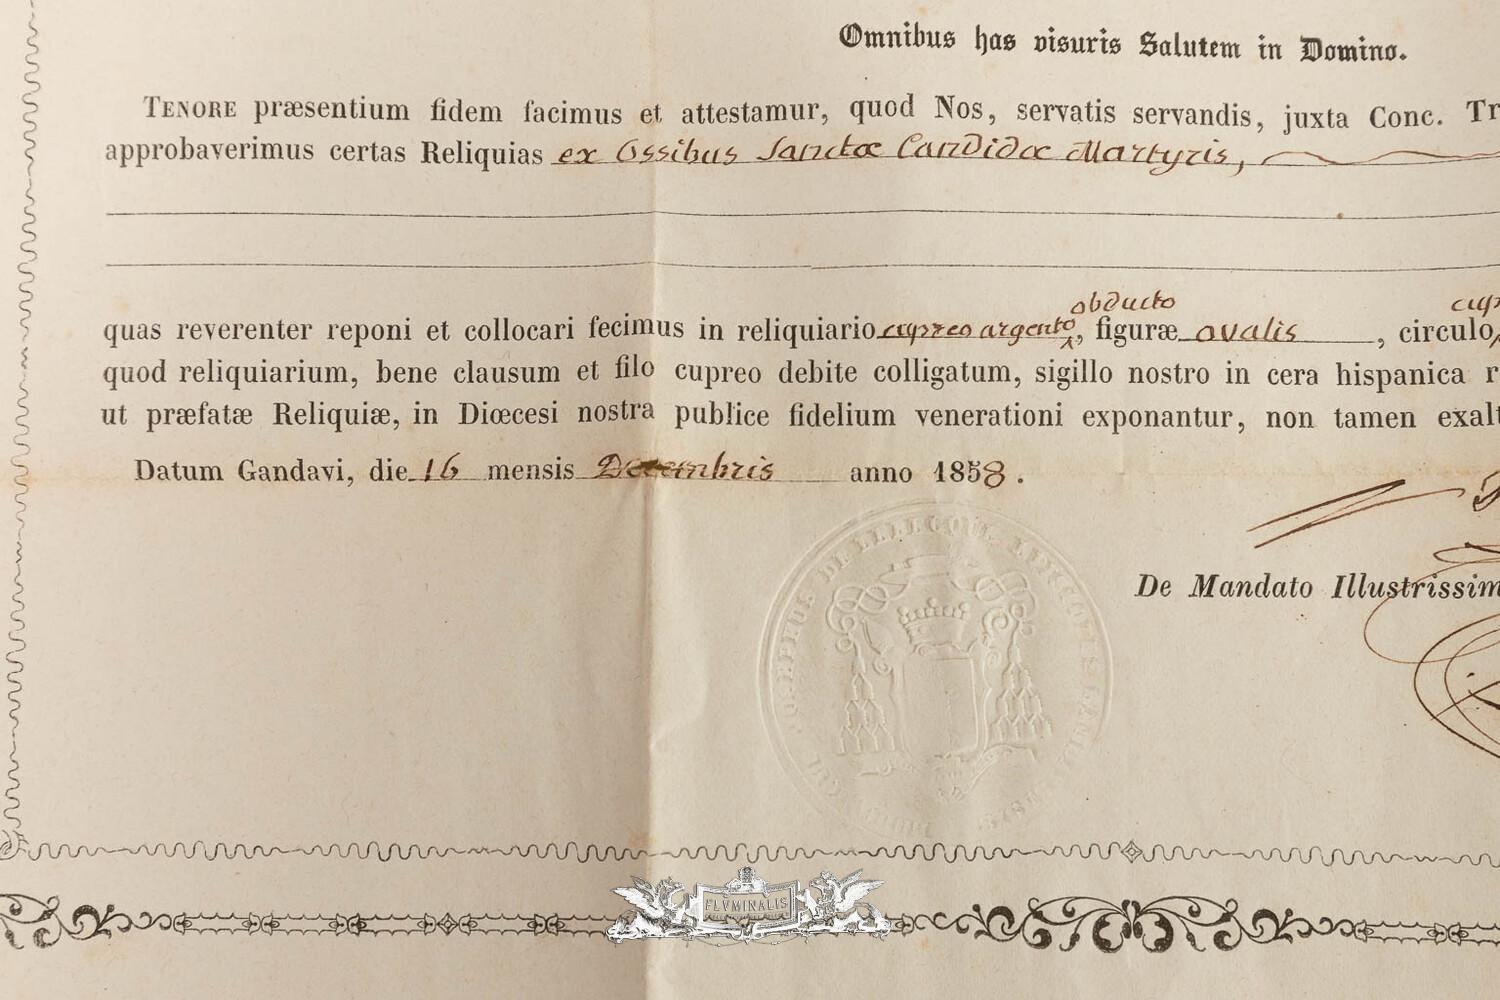 Omnibus has visuris Salutem in Domino.
TENORE præsentium fidem facimus et attestamur, quod Nos, servatis servandis, juxta Conc. Tr
approbaverimus certas Reliquias ex Ossibus Sanctæ Candidæ Martyris,
obducto cup
quas reverenter reponi et collocari fecimus in reliquiario cupreo argento, figuræ ovalis, circulo
quod reliquiarium, bene clausum et filo cupreo debite colligatum, sigillo nostro in cera hispanica r
ut præfatæ Reliquiæ, in Diœcesi nostra publice fidelium venerationi exponantur, non tamen exalt
Datum Gandavi, die 16 mensis Decembris anno 1858.
De Mandato Illustrissim
FLVMINALIS